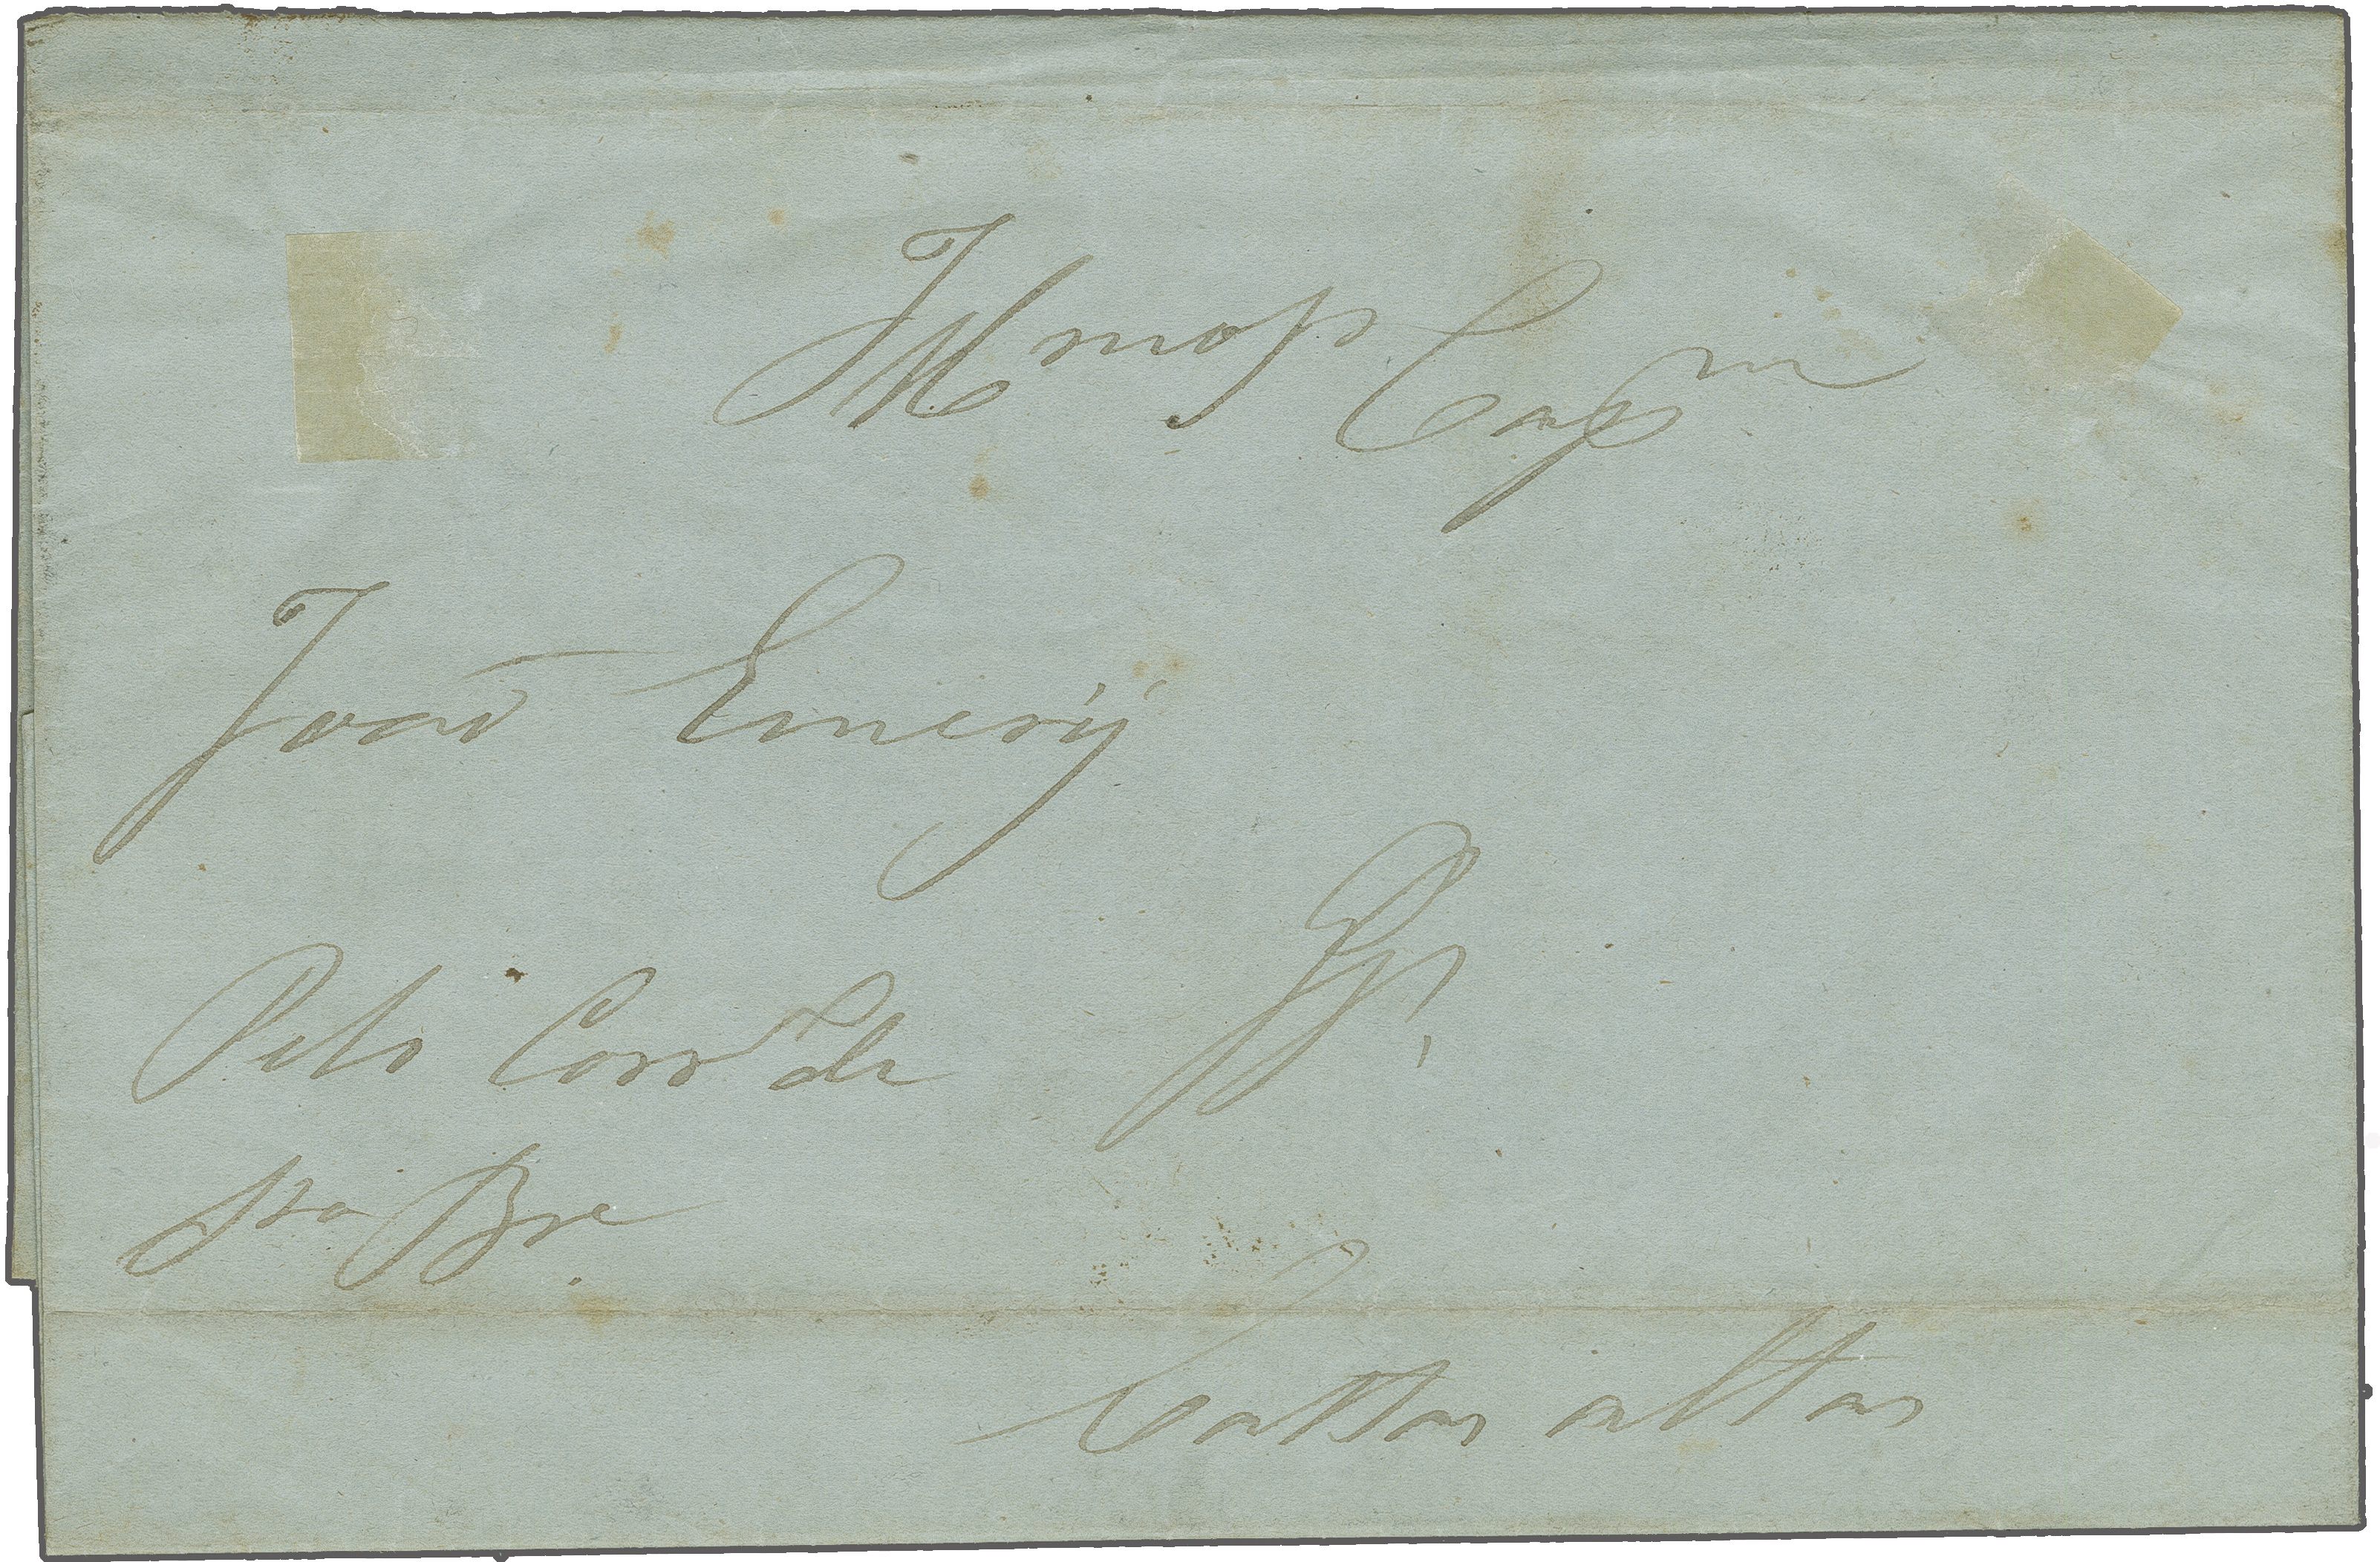 Illmo Sr Capm
João Emery
Pelo Corro de
Sta Bar
Cattas altas